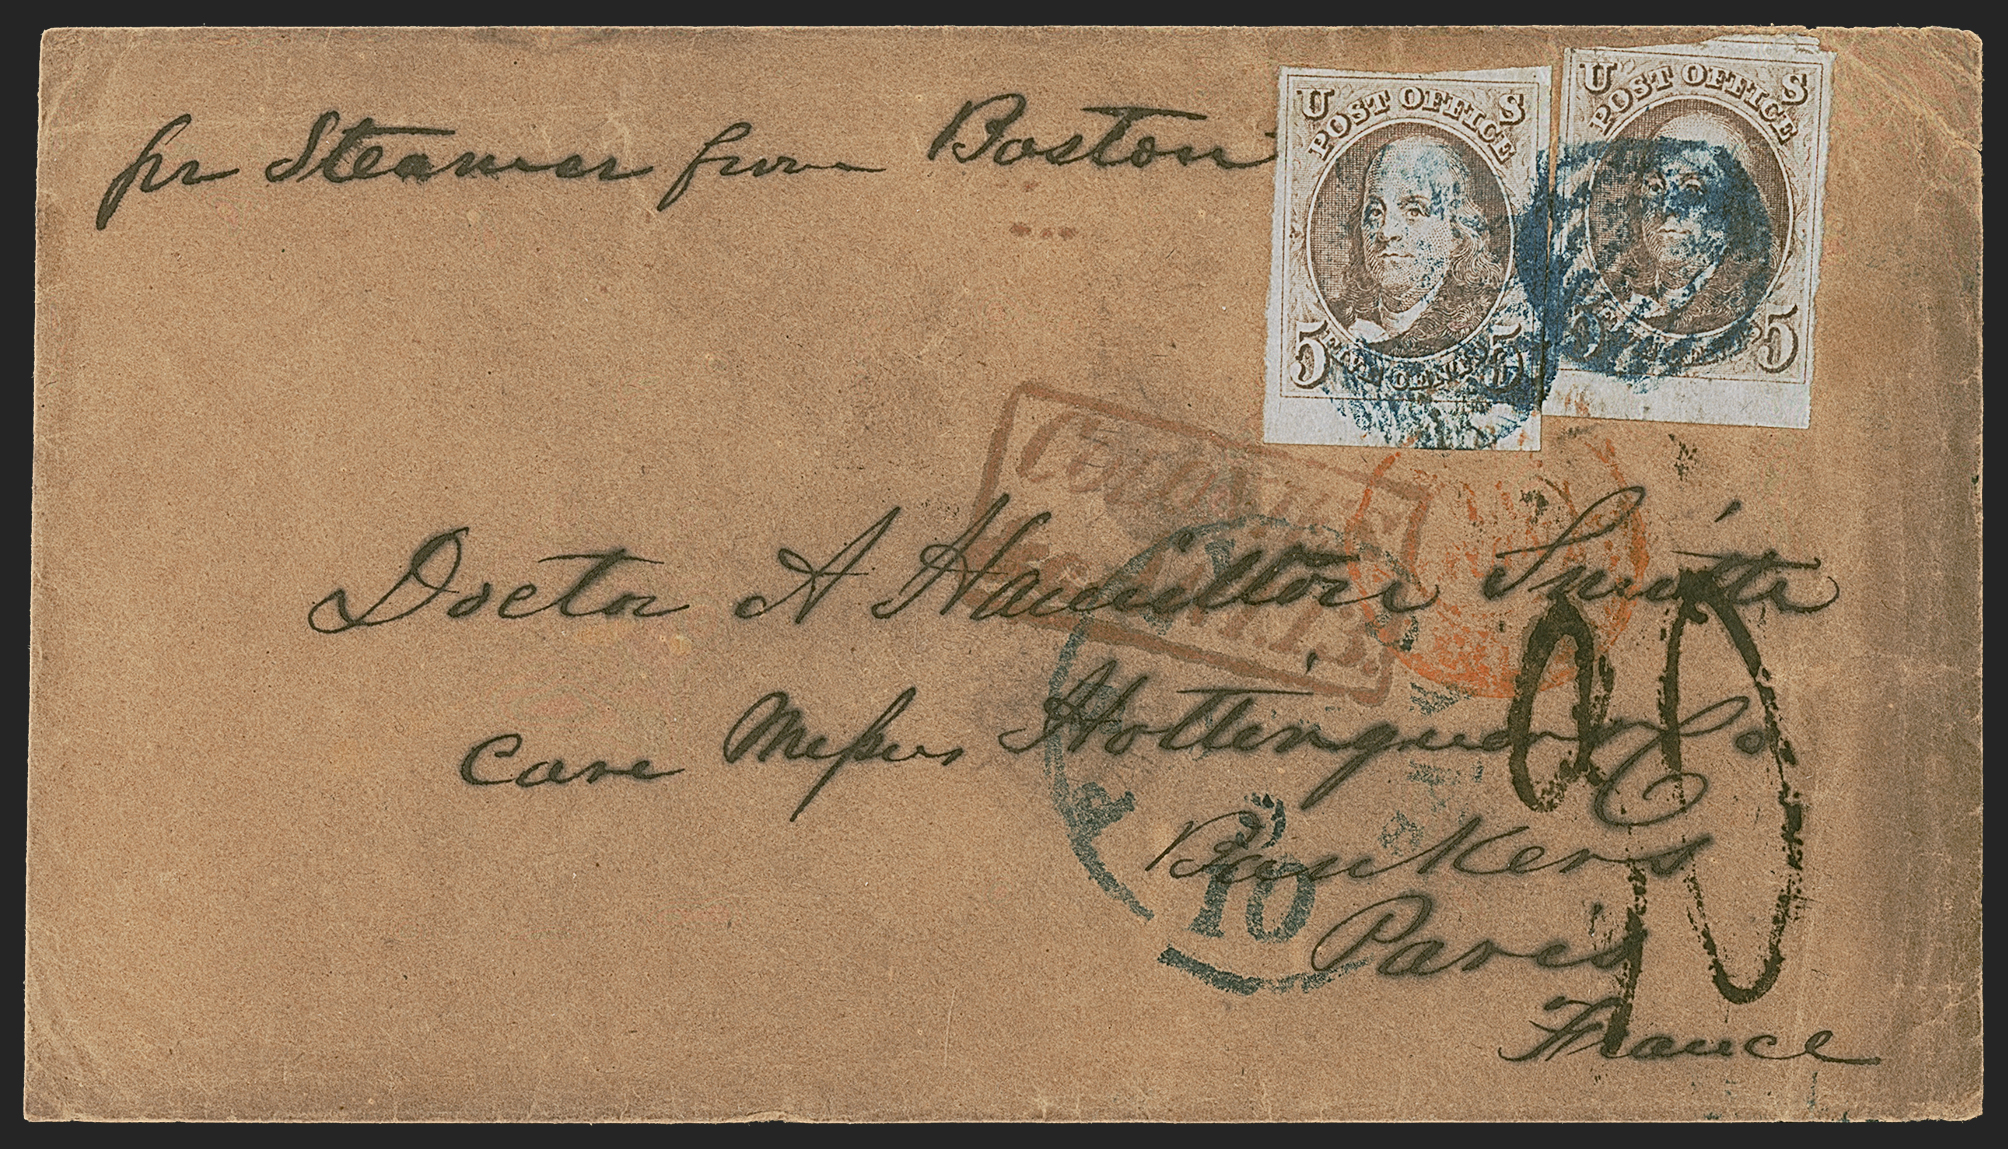 pr Steamer from Boston
U S
POST OFFICE
5 FIVE CENTS 5
U S
POST OFFICE
5
COLONIES
&c. ART. 13.
Doctor A Hamilton Smith
Care Messrs Hottinguer & Co
10
Bankers
Paris
France